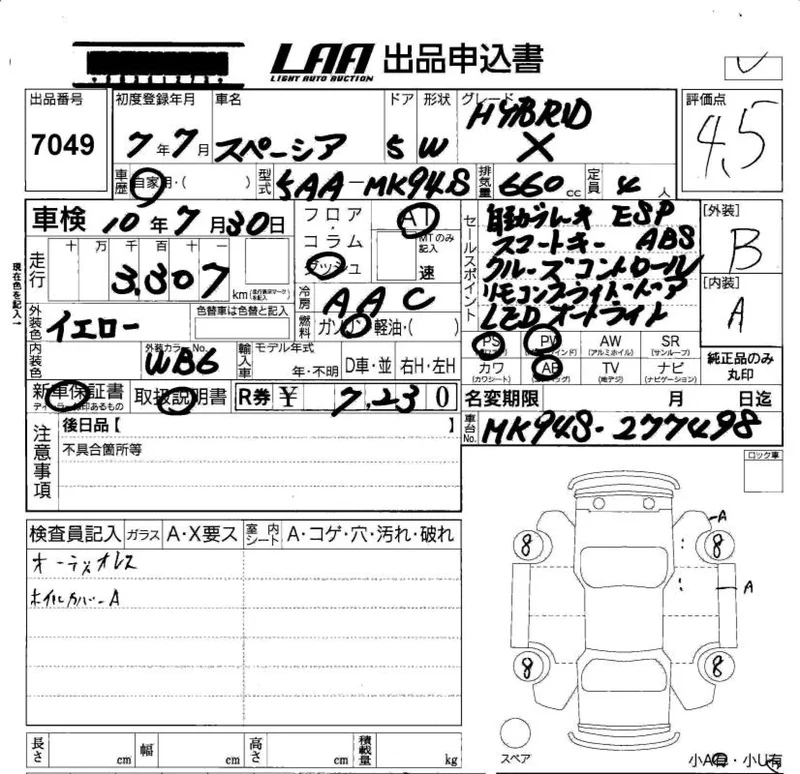 LAA 出品申込書
LIGHT AUTO AUCTION
出品番号 初度登録年月 車名 ドア 形状 グレード 評価点
7049 7年7月 スペーシア 5 W HYBRID X 4.5
車歴 自家用・( ) 型式 5AA-MK94S 排気量 660cc 定員 4人
車検 10年7月30日 フロア・コラム ダッシュ AT MTのみ記入 速
セールスポイント 自動ブレーキ ESP
スマートキー ABS
クルーズコントロール
リモコンスライドドア
LEDオートライト
[外装] B
[内装] A
現在色を記入→
走行 十 万 千 百 十 一
3,307 km
外装色 イエロー 色替車は色替と記入
冷房 AAC
燃料 ガソリン・軽油・( )
内装色 外装カラーNo. WB6 輸入車 モデル年式 年・不明 D車・並 右H・左H
PS PW AW (アルミホイル) SR (サンルーフ)
カワ (カワシート) AB TV (地デジ) ナビ (ナビゲーション)
純正品のみ丸印
新車保証書 取扱説明書 R券 ¥ 7,230
名変期限 月 日迄
車台No. MK94S-277498
注意事項 後日品【 】
不具合箇所等
ロック車
検査員記入 ガラス A・X要ス 室内シート A・コゲ・穴・汚れ・破れ
オーディオレス
ホイルカバーA
A
8 8
A
8 8
スペア
小A有・小U有
長さ cm 幅 cm 高さ cm 積載量 kg